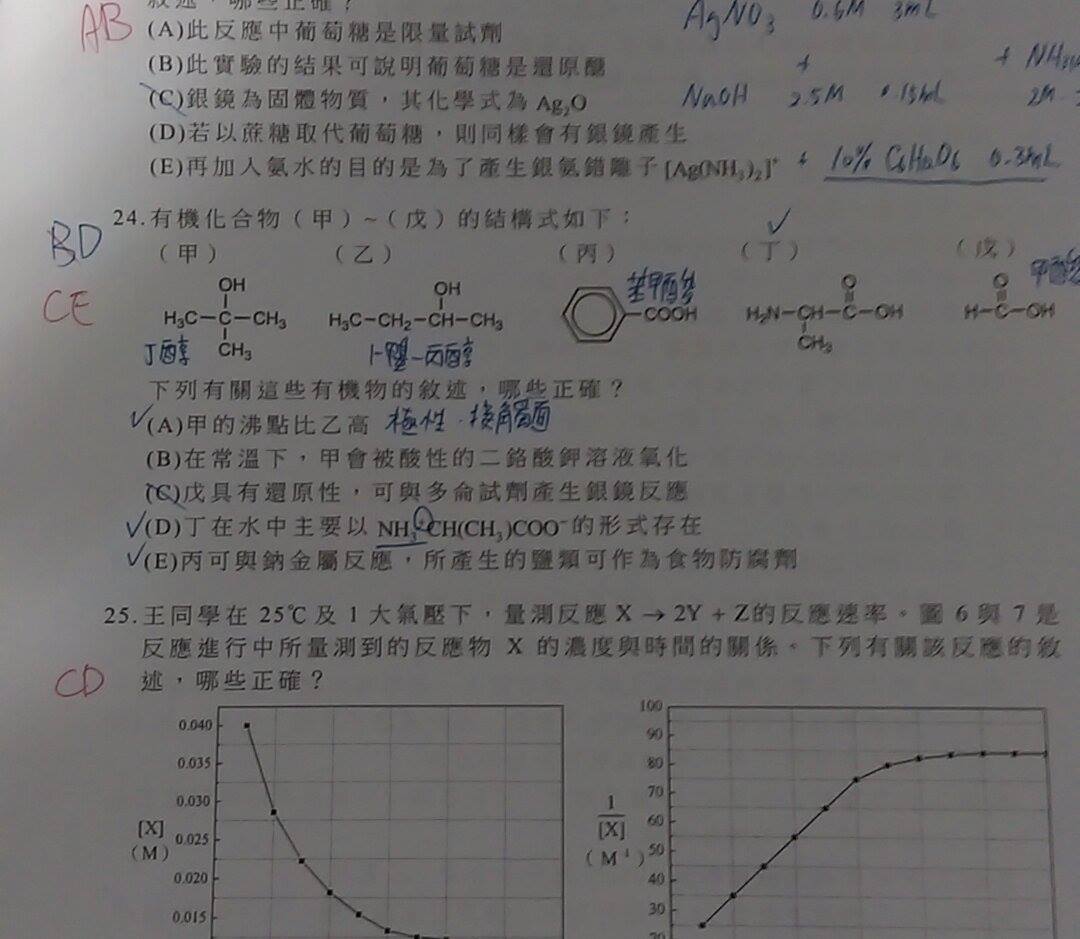 敘述，哪些正確？
AB (A)此反應中葡萄糖是限量試劑 AgNO3 0.6M 3mL
(B)此實驗的結果可說明葡萄糖是還原醣 + +
(C)銀鏡為固體物質，其化學式為 Ag₂O NaOH 2.5M 0.15mL 2M
(D)若以蔗糖取代葡萄糖，則同樣會有銀鏡產生
(E)再加入氨水的目的是為了產生銀氨錯離子[Ag(NH₃)₂]⁺ + 10% C6H12O6
24.有機化合物（甲）~（戊）的結構式如下：
BD
（甲） （乙） （丙） （丁） （戊）
CE
OH OH 苯甲酸 O O
H₃C－C－CH₃ H₃C－CH₂－CH－CH₃ －COOH H₂N－CH－C－OH H－C－OH
丁醇 CH₃ 丙醇 CH₃
下列有關這些有機物的敘述，哪些正確？
(A)甲的沸點比乙高 極性．接觸面
(B)在常溫下，甲會被酸性的二鉻酸鉀溶液氧化
(C)戊具有還原性，可與多侖試劑產生銀鏡反應
(D)丁在水中主要以 NH₃⁺CH(CH₃)COO⁻的形式存在
(E)丙可與鈉金屬反應，所產生的鹽類可作為食物防腐劑
25.王同學在 25℃ 及 1 大氣壓下，量測反應 X → 2Y + Z的反應速率。圖 6 與 7 是
反應進行中所量測到的反應物 X 的濃度與時間的關係。下列有關該反應的敘
CD 述，哪些正確？
0.040
0.035
0.030
[X]
(M)
0.025
0.020
0.015
100
90
80
70
60
1
[X]
(M⁻¹)
50
40
30
20